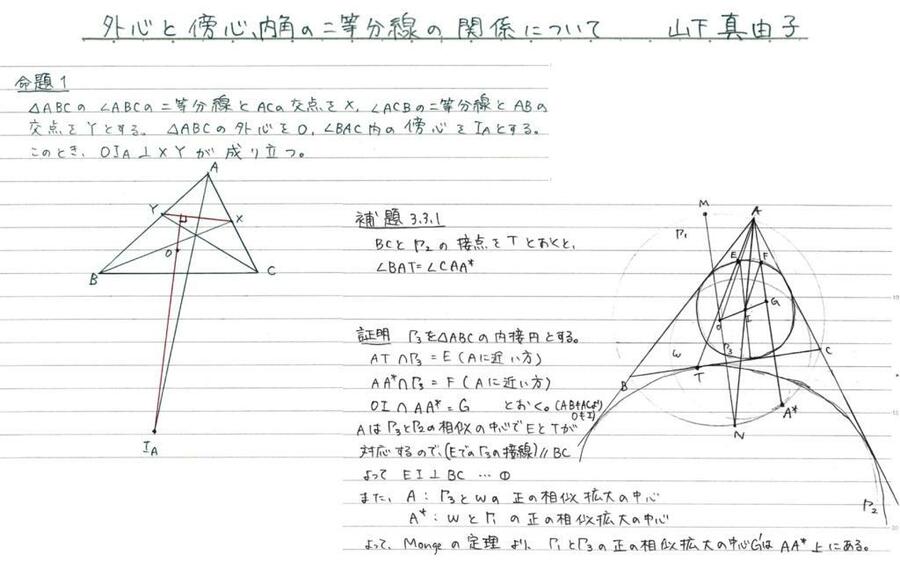 外心と傍心、内角の二等分線の関係について 山下真由子
命題1
△ABCの ∠ABCの二等分線とACの交点をX, ∠ACBの二等分線とABの
交点をYとする。△ABCの外心をO, ∠BAC内の傍心をIAとする。
このとき、OIA⊥XYが成り立つ。
A
Y
X
O
B
C
IA
補題3.3.1
BCとΓ2の接点をTとおくと、
∠BAT=∠CAA*
証明 Γ3を△ABCの内接円とする。
AT∩Γ3=E(Aに近い方)
AA*∩Γ3=F(Aに近い方)
OI∩AA*=G とおく。(AB≠ACより O≠I)
AはΓ3とΓ2の相似の中心でEとTが
対応するので、(EでのΓ3の接線)//BC
よって EI⊥BC …①
また、A:Γ3とωの正の相似拡大の中心
A*:ωとΓ1の正の相似拡大の中心
よって、Mongeの定理より、Γ1とΓ3の正の相似拡大の中心G'はAA*上にある。
M
A
Γ1
E
F
G
O
I
ω
Γ3
C
B
T
A*
N
Γ2